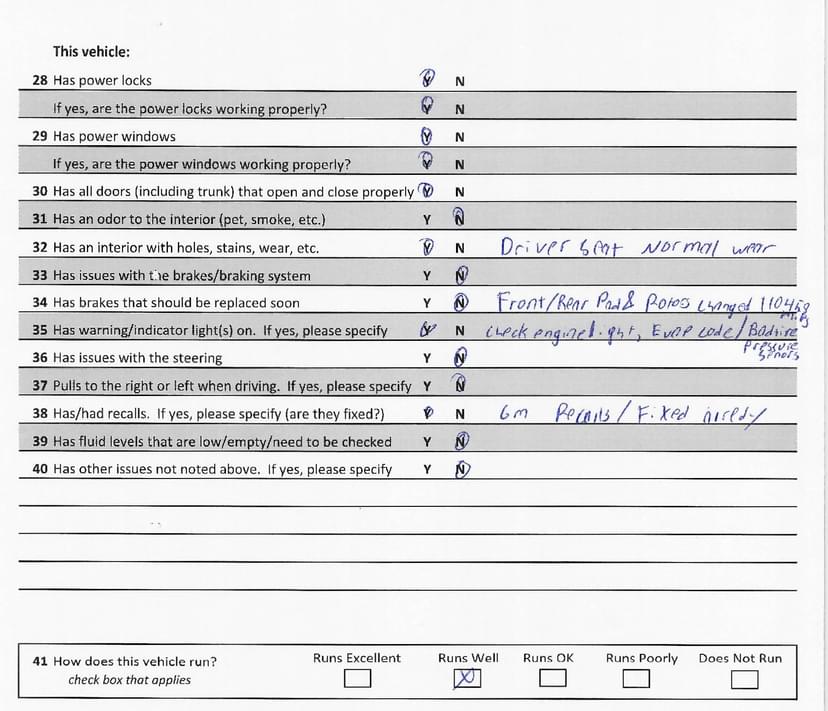 This vehicle:
28 Has power locks Y N
If yes, are the power locks working properly? Y N
29 Has power windows Y N
If yes, are the power windows working properly? Y N
30 Has all doors (including trunk) that open and close properly Y N
31 Has an odor to the interior (pet, smoke, etc.) Y N
32 Has an interior with holes, stains, wear, etc. Y N Driver seat normal wear
33 Has issues with the brakes/braking system Y N
34 Has brakes that should be replaced soon Y N Front/Rear Pad & Rotos changed
35 Has warning/indicator light(s) on. If yes, please specify Y N check engine light, Evap code/Bad tire
Pressure
36 Has issues with the steering Y N
37 Pulls to the right or left when driving. If yes, please specify Y N
38 Has/had recalls. If yes, please specify (are they fixed?) Y N Gm Recalls/Fixed
39 Has fluid levels that are low/empty/need to be checked Y N
40 Has other issues not noted above. If yes, please specify Y N
41 How does this vehicle run? Runs Excellent Runs Well Runs OK Runs Poorly Does Not Run
check box that applies X